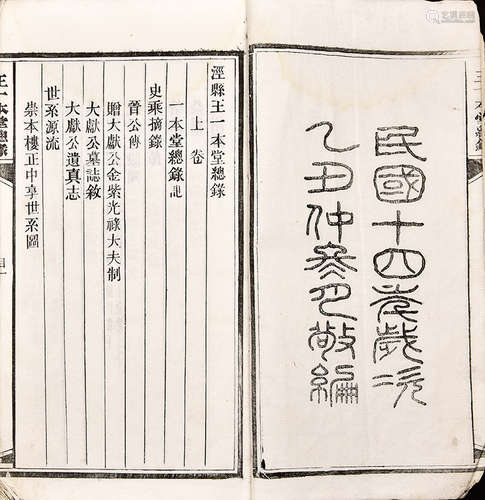 民國十四年歲次
乙丑仲月敬編
涇縣王一本堂總錄
上卷
一本堂總錄
史乘摘錄
晉公傳
贈大獻公金紫光祿大夫制
大獻公墓誌敘
大獻公遺真志
世系源流
崇本樓正中享世系圖
王一本堂總錄
王一本堂總錄